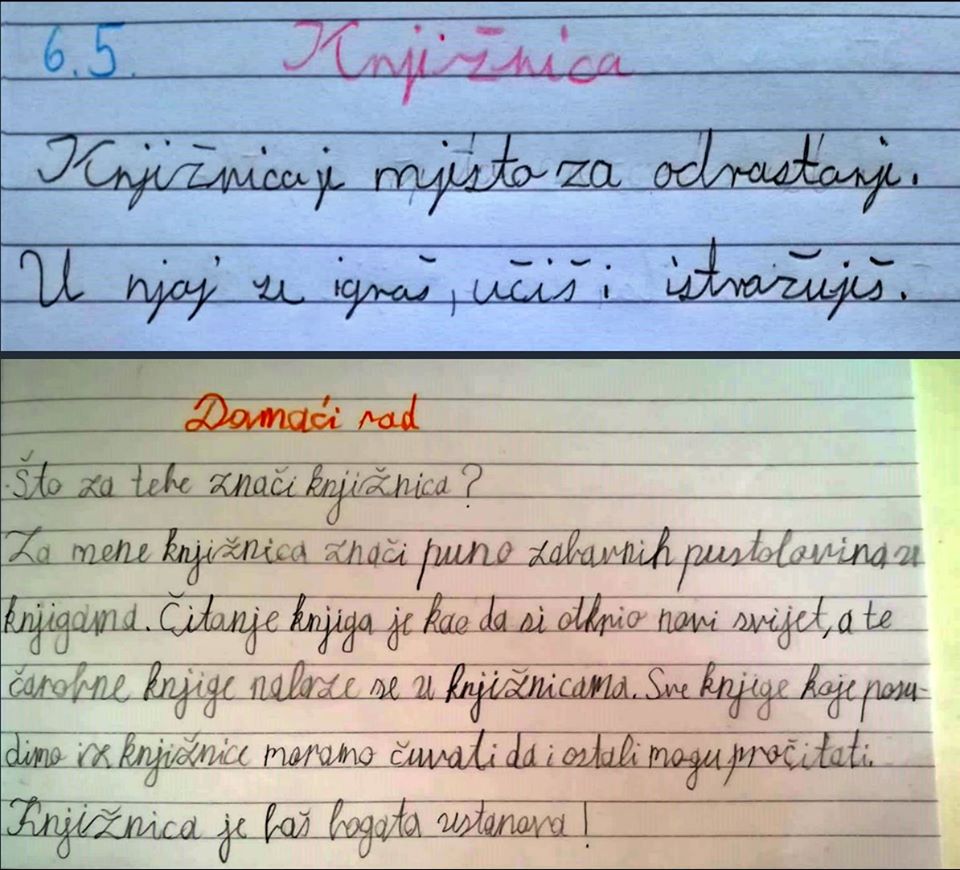 6.5. Knjižnica
Knjižnica je mjesto za odrastanje.
U njoj se igraš, učiš i istražuješ.
Domaći rad
Što za tebe znači knjižnica?
Za mene knjižnica znači puno zabavnih pustolovina u
knjigama. Čitanje knjiga je kao da si otkrio novi svijet, a te
čarobne knjige nalaze se u knjižnicama. Sve knjige koje posu-
dimo iz knjižnice moramo čuvati da i ostali mogu pročitati.
Knjižnica je baš bogata ustanova!